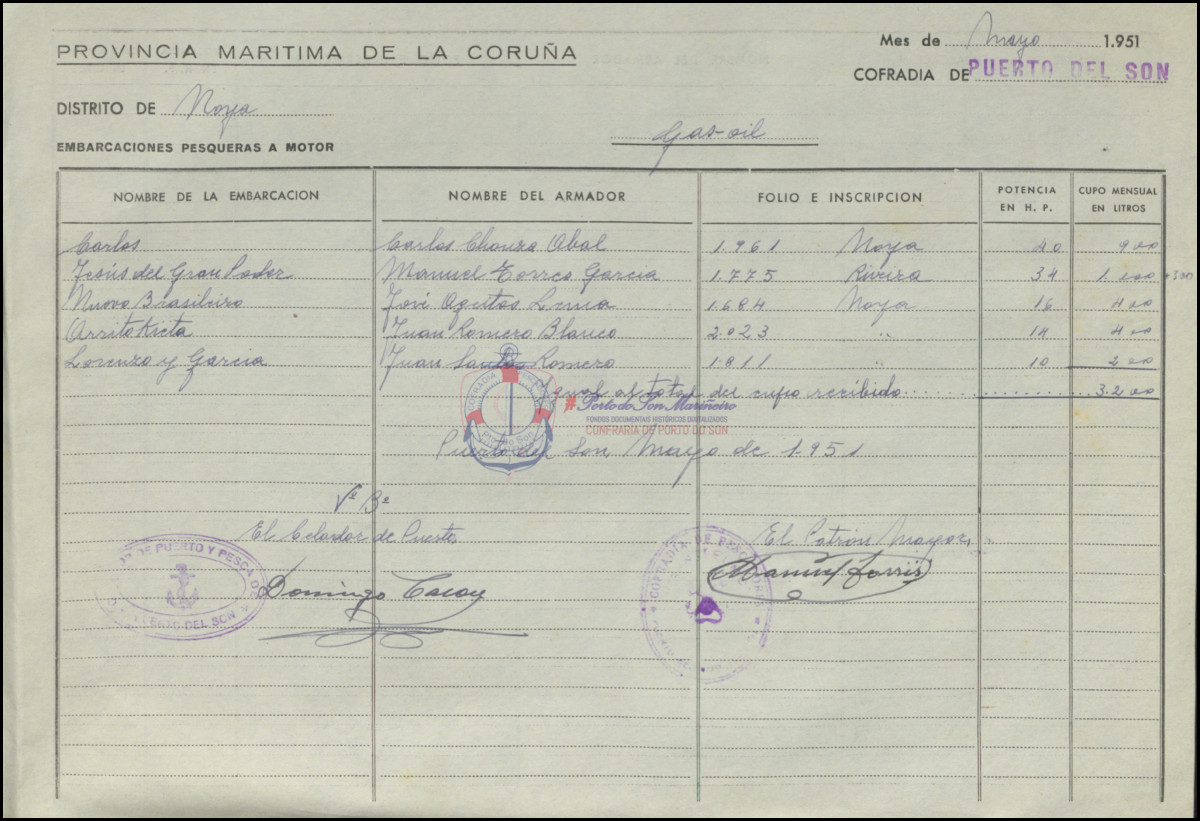 PROVINCIA MARITIMA DE LA CORUÑA
Mes de Mayo 1.951
COFRADIA DE PUERTO DEL SON
DISTRITO DE Noya
Gas-oil
EMBARCACIONES PESQUERAS A MOTOR
NOMBRE DE LA EMBARCACION NOMBRE DEL ARMADOR FOLIO E INSCRIPCION POTENCIA EN H. P. CUPO MENSUAL EN LITROS
Carlos Carlos Chouza Abal 1.961 Noya 40 900
Jesús del Gran Poder Manuel Torres Garcia 1.775 Riveira 34 1.300
Nuevo Brasileiro José Ageitos Lema 1.684 Noya 16 400
Juan Romero Blanco 2.023 " 14 400
Lorenzo y Garcia Juan Santos Romero 1.811 " 10 200
Igual al total del cupo recibido 3.200
#Porto do Son Mariñeiro
FONDOS DOCUMENTAIS HISTÓRICOS DIXITALIZADOS
CONFRARIA DE PORTO DO SON
Puerto del Son, Mayo de 1.951
Vº Bº
El Celador de Puerto, El Patrón Mayor,
DE PUERTO Y PESCA DE
PUERTO DEL SON
COFRADIA DE PESCADORES
Domingo
Manuel Torres